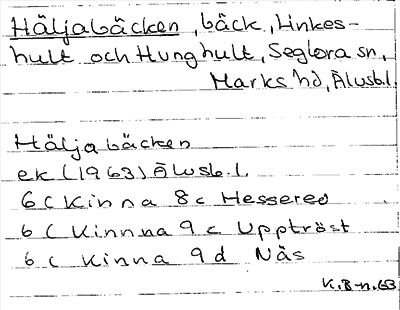 Häljabäcken, bäck, Linkes-
hult och Hunghult, Seglora sn,
Marks hd, Älvsbl.
Häljabäcken
ek (1963) Älvsb.l.
6 C Kinna 8c Hessered
6 C Kinnna 9c Upptröst
6 c Kinna 9d Näs
K.B-n.63